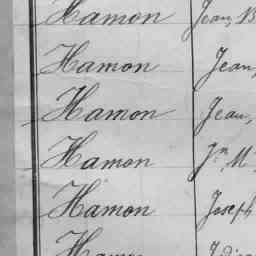 Hamon Jean, B
Hamon Jean,
Hamon Jean,
Hamon Jn M
Hamon Joseph
Hamon